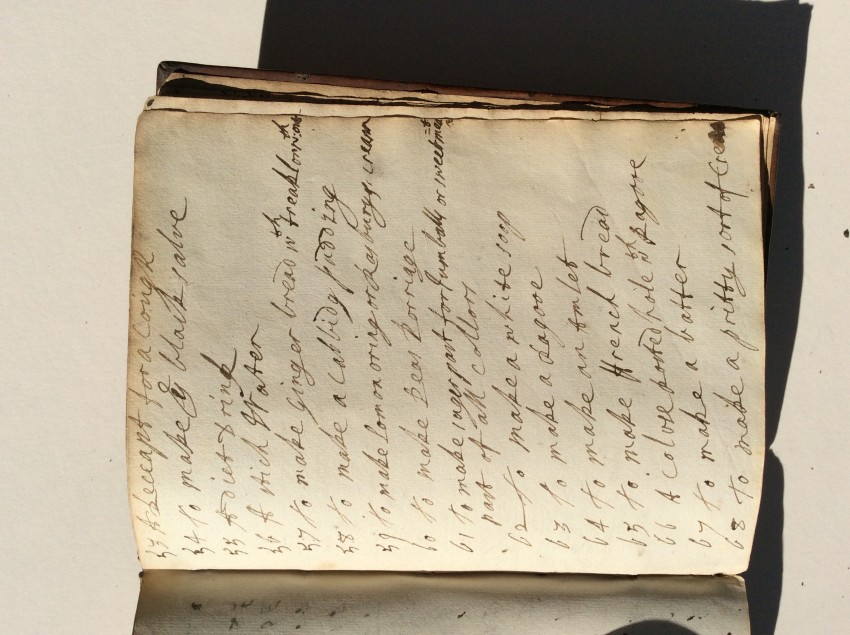 53 A Receapt for a Cough
54 to make ye black salve
55 A diet drink
56 A stich Water
57 to make ginger bread wth treakl
58 to make a Cabbidg pudding
59 to make lemon oring or Rasburys cream
60 to make Peas Porriage
61 to make suger past for Jumballs or sweetmeats
past of all Collors
62 to make a white soop
63 to make a Ragooe
64 to make an omlet
65 to make ffrench bread
66 A Colver potted hole wth Ragooe
67 to make a batter
68 to make a pritty sort of Cream